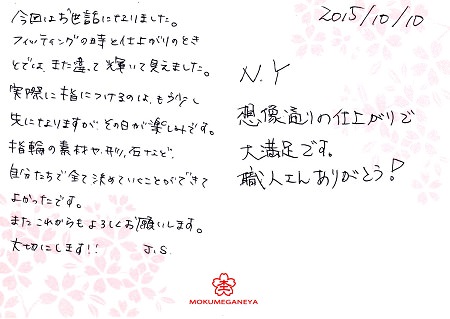 今回はお世話になりました。
フィッティングの時と仕上がりのとき
とでは、また違って輝いて見えました。
実際に指につけるのは、もう少し
先になりますが、その日が楽しみです。
指輪の素材や、形、石など、
自分たちで全て決めていくことができて
よかったです。
またこれからもよろしくお願いします。
大切にします!!
J.S.
2015/10/10
N.Y
想像通りの仕上がりで
大満足です。
職人さんありがとう!
MOKUMEGANEYA